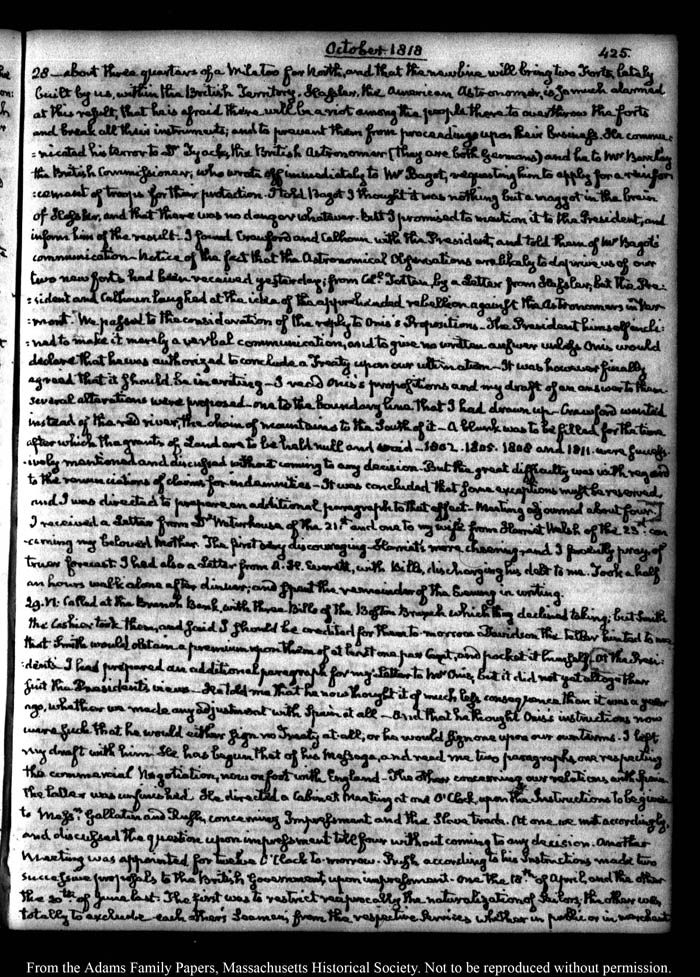 October 1818
425.
28 — about three quarters of a Mile too far North, and that the new line will bring two Forts, lately
built by us, within the British Territory. Hassler, the American Astronomer, is so much alarmed
at this result, that he is afraid there will be a riot among the people there to overthrow the forts
and break all their instruments; and to prevent them from proceeding upon their business. He commu-
:nicated his terror to Dr Tiarks, the British Astronomer (they are both Germans) and he to Mr Barclay
the British Commissioner, who wrote off immediately to Mr Bagot, requesting him to apply for a reinfor-
:cement of troops for their protection. I told Bagot I thought it was nothing but a maggot in the brain
of Hassler, and that there was no danger whatever. But I promised to mention it to the President, and
inform him of the result. I found Crawford and Calhoun with the President, and told them of Mr Bagot's
communication — Notice of the fact that the Astronomical Observations are likely to deprive us of our
two new forts had been received yesterday; from Coll. Totten, by a Letter from Hassler; but the Pre-
:sident and Calhoun laughed at the idea of the apprehended rebellion against the Astronomers in Ver-
mont. We passed to the consideration of the reply to Onis's Propositions. The President himself incli-
:ned to make it merely a verbal communication, and to give no written answer unless Onis would
declare that he was authorized to conclude a Treaty upon our ultimation — It was however finally
agreed that it should be in writing — I read Onis's propositions and my draft of an answer to them
several alterations were proposed — one to the boundary line that I had drawn up — Crawford wanted
instead of the red river, the chain of mountains to the South of it — A blank was to be filled for the time
after which the grants of Land are to be held null and void — 1802. 1805. 1808 and 1811. were success-
:ively mentioned and discussed without coming to any decision. But the great difficulty was with regard
to the renunciations of claims for indemnities — It was concluded that some exceptions must be reserved
and I was directed to prepare an additional paragraph to that effect — Meeting adjourned about four.
I received a Letter from Dr Waterhouse of the 21st and one to my wife from Harriet Welsh of the 23d con-
-cerning my beloved Mother. The first very discouraging — Harriet's more cheering, and I fervently pray, of
truer forecast. I had also a Letter from A. H. Everett, with Bills, discharging his debt to me. Took a half
an hours walk alone after dinner, and spent the remainder of the Evening in writing.
29. V. Called at the Branch Bank, with three Bills of the Boston Branch which they declined taking; but Smith
the Cashier took them, and said I should be credited for them to-morrow. Davidson the teller hinted to me
that Smith would obtain a premium upon them of at least one per Cent, and pocket it himself. At the Presi-
:dent's. I had prepared an additional paragraph for my Letter to Mr Onis, but it did not yet altogether
suit the President's views — He told me that he now thought it of much less consequence than it was a year
ago, whether we made any adjustment with Spain at all — And that he thought Onis's instructions now
were such that he would either sign no Treaty at all, or he would sign one upon our own terms. I left
my draft with him. He has begun that of his Message, and read me two paragraphs, one respecting
the commercial Negotiation, now on foot with England — The other concerning our relations with Spain.
The latter was unfinished. He directed a Cabinet Meeting at one O'Clock upon the Instructions to be given
to Messrs. Gallatin and Rush, concerning Impressment and the Slave trade. At one we met accordingly,
and discussed the question upon impressment till four without coming to any decision. Another
Meeting was appointed for twelve O'Clock to-morrow. Rush according to his Instructions made two
successive proposals to the British Government, upon impressment. One the 18th of April, and the other
the 20th of June last. The first was to restrict reciprocally the naturalization of Sailors; the other was,
totally to exclude each other's Seamen, from the respective services whether in public or in merchant
From the Adams Family Papers, Massachusetts Historical Society. Not to be reproduced without permission.